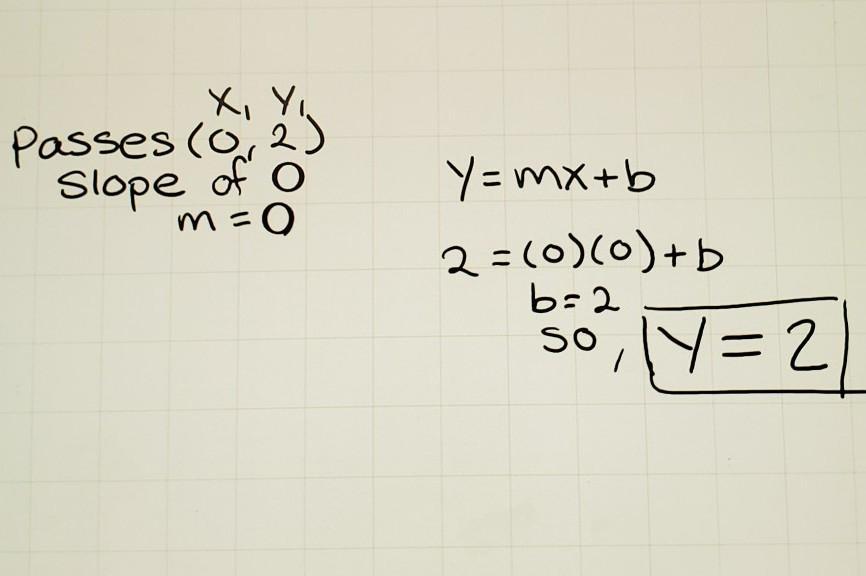 X₁ Y₁
Passes (0, 2)
Slope of 0
m = 0
Y = mx + b
2 = (0)(0) + b
b = 2
so, Y = 2